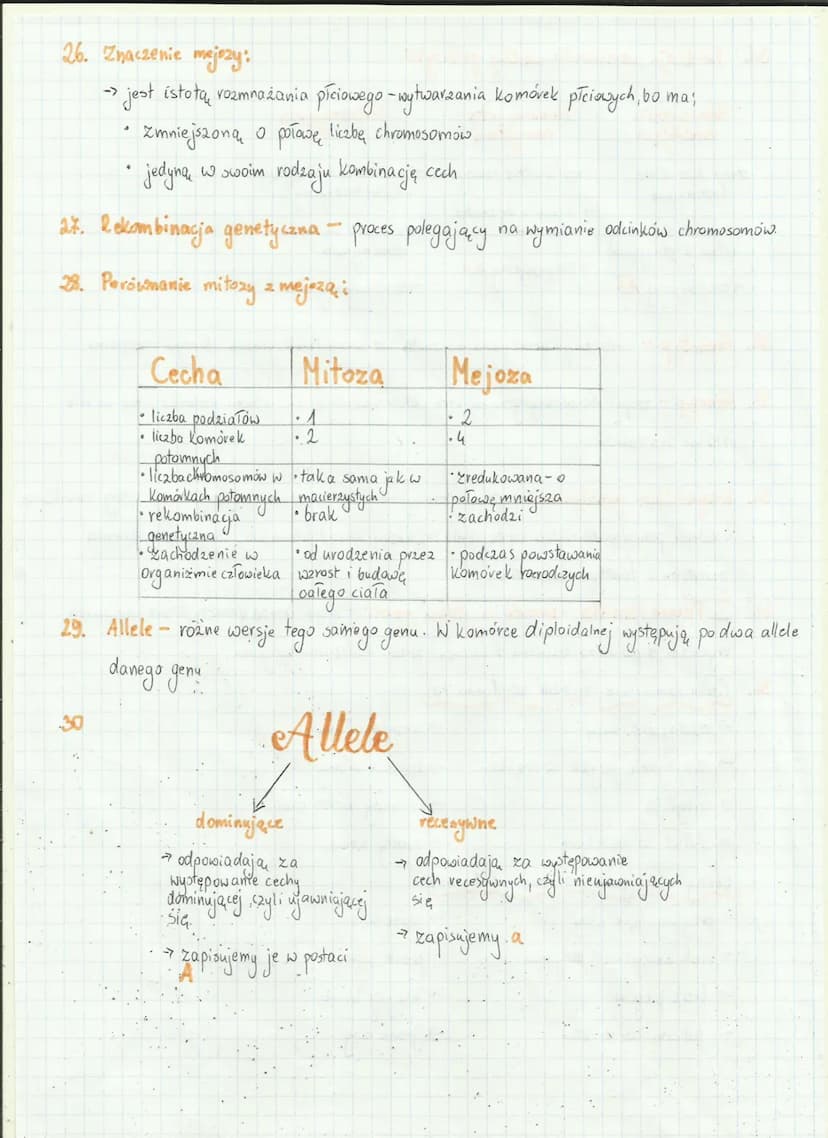 26. Znaczenie mejozy:
→ jest istotą rozmnażania płciowego - wytwarzania komórek płciowych, bo ma:
• zmniejszoną o połowę liczbę chromosomów
• jedyną w swoim rodzaju kombinację cech
27. Rekombinacja genetyczna - proces polegający na wymianie odcinków chromosomów.
28. Porównanie mitozy z mejozą:
Cecha Mitoza Mejoza
• liczba podziałów • 1 • 2
• liczba komórek • 2 • 4
potomnych
• liczba chromosomów w • taka sama jak w • zredukowana - o
komórkach potomnych macierzystych połowę mniejsza
• rekombinacja • brak • zachodzi
genetyczna
• zachodzenie w • od urodzenia przez • podczas powstawania
organizmie człowieka wzrost i budowę komórek rozrodczych
całego ciała
29. Allele - różne wersje tego samego genu. W komórce diploidalnej występują po dwa allele
danego genu.
30 Allele
dominujące recesywne
→ odpowiadają za → odpowiadają za występowanie
występowanie cechy cech recesywnych, czyli nieujawniających
dominującej, czyli ujawniającej się
się.
→ zapisujemy je w postaci → zapisujemy a
A